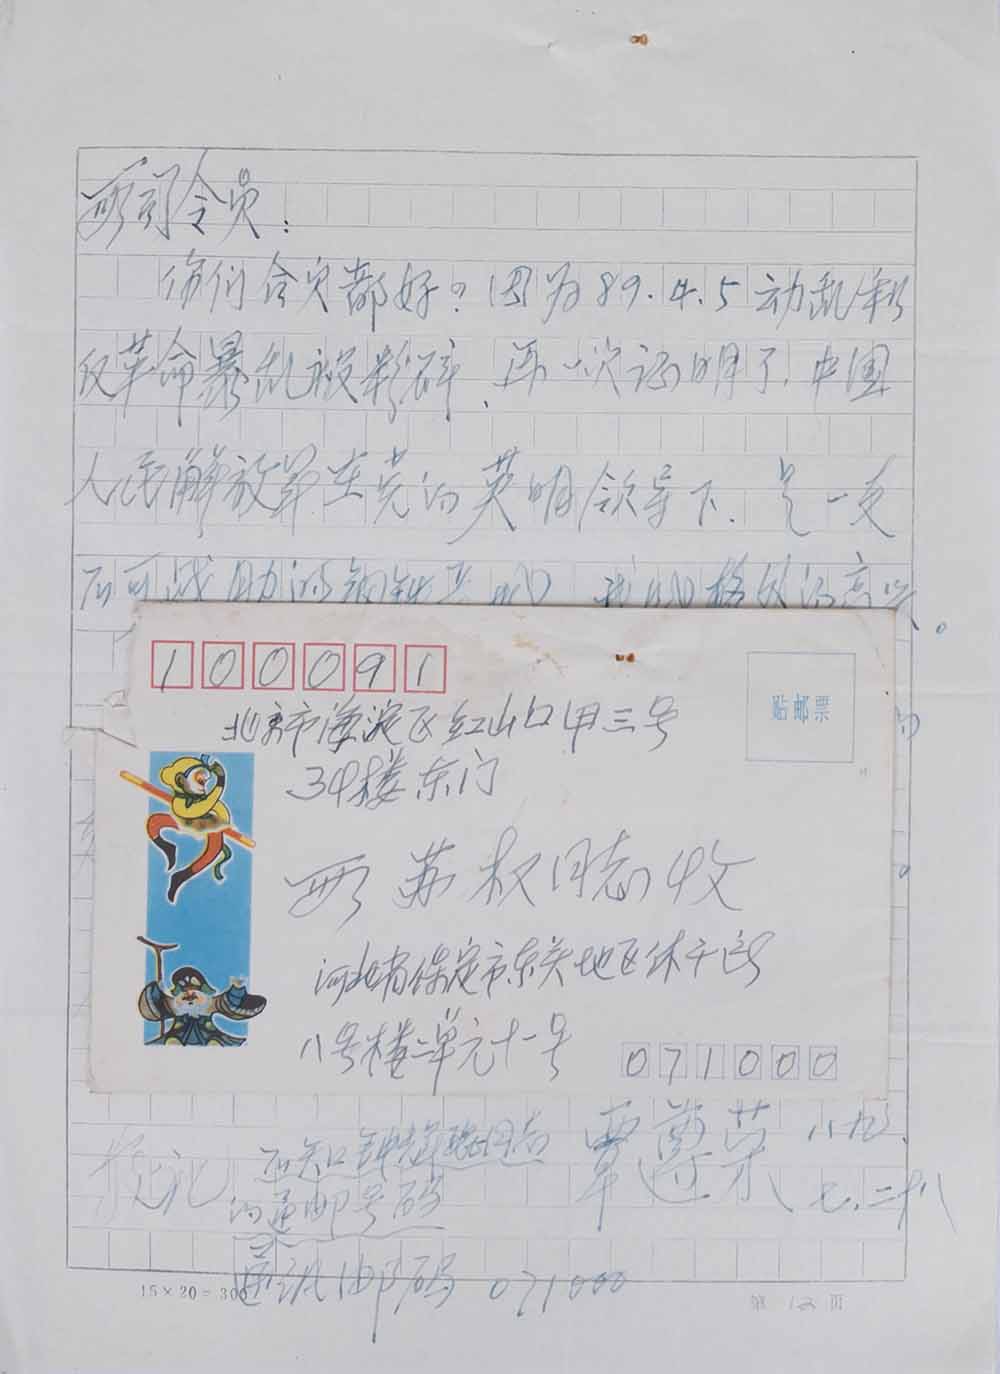 司令员：
你们合家都好？因为89.4.5动乱和
反革命暴乱被粉碎、再一次证明了.中国
人民解放军在党的英明领导下.是一支
不可战胜的钢铁 我 格外的高兴。
100091
贴邮票
北京市海淀区红山口甲三号
34楼东门
苏权同志收
河北省保定市东关地区休干所
八号楼二单元十一号
071000
不知钟辉琨同志 覃 荣 八九.
的通邮号码 七.二十八
通讯邮码 071000
15×20=300
第 页